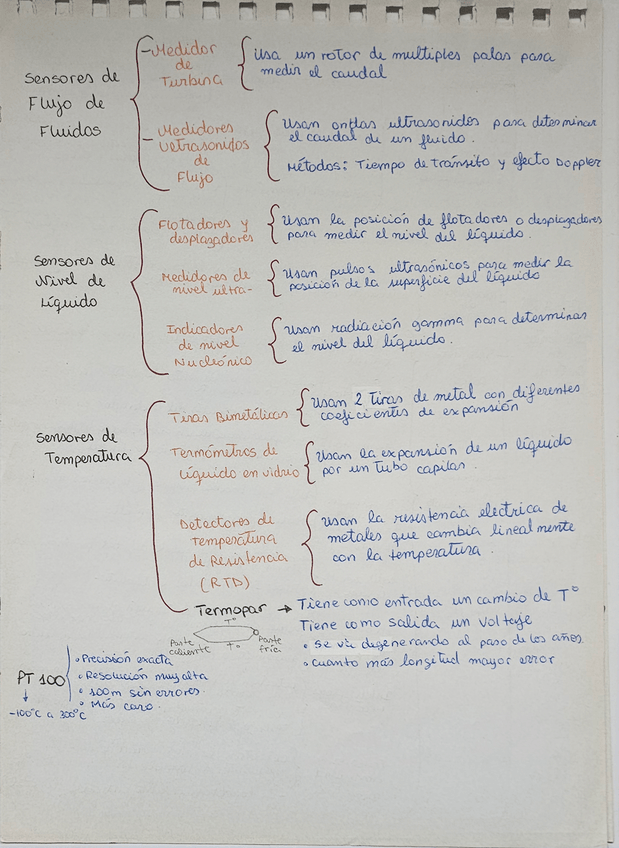 Sensores de
Flujo de
Fluidos
-Medidor
de
Turbina
Usa un rotor de multiples palas para
medir el caudal
- Medidores
Ultrasonidos
de
Flujo
Usan ondas ultrasonidos para determinar
el caudal de un fluido.
Métodos: Tiempo de tránsito y efecto Doppler
Sensores de
Nivel de
Líquido
Flotadores y
desplazadores
Usan la posición de flotadores o desplazadores
para medir el nivel del líquido.
Medidores de
nivel ultra-
Usan pulsos ultrasónicos para medir la
posición de la superficie del líquido
Indicadores
de nivel
Nucleónico
Usan radiación gamma para determinar
el nivel del líquido.
Sensores de
Temperatura
Tiras Bimetálicas
Usan 2 tiras de metal con diferentes
coeficientes de expansión
Termómetros de
Líquido en vidrio
Usan la expansión de un líquido
por un tubo capilar.
Detectores de
Temperatura
de Resistencia
(RTD)
Usan la resistencia electrica de
metales que cambia linealmente
con la temperatura.
Termopar → Tiene como entrada un cambio de T°
Tiene como salida un voltaje
• Se va degenerando al paso de los años.
• Cuanto más longitud mayor error
T°
Parte
caliente
T°
Parte
fría
PT 100
↓
-100°C a 300°C
• Precisión exacta
• Resolución muy alta
• 100m sin errores.
• Más caro.